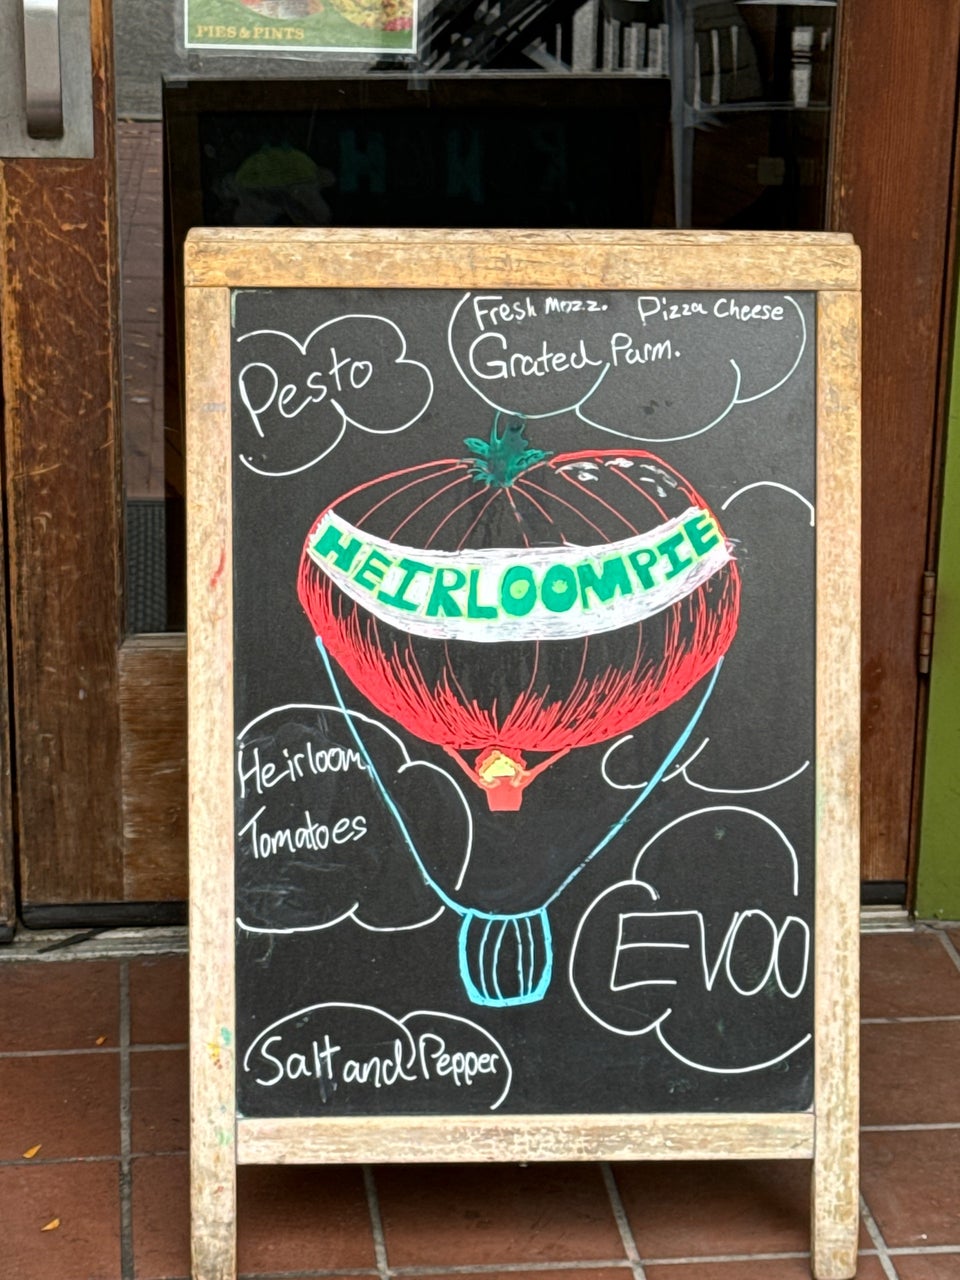 PIES & PINTS
Pesto
Fresh Mozz. Pizza Cheese
Grated Parm.
HEIRLOOMPIE
Heirloom
Tomatoes
EVOO
Salt and Pepper